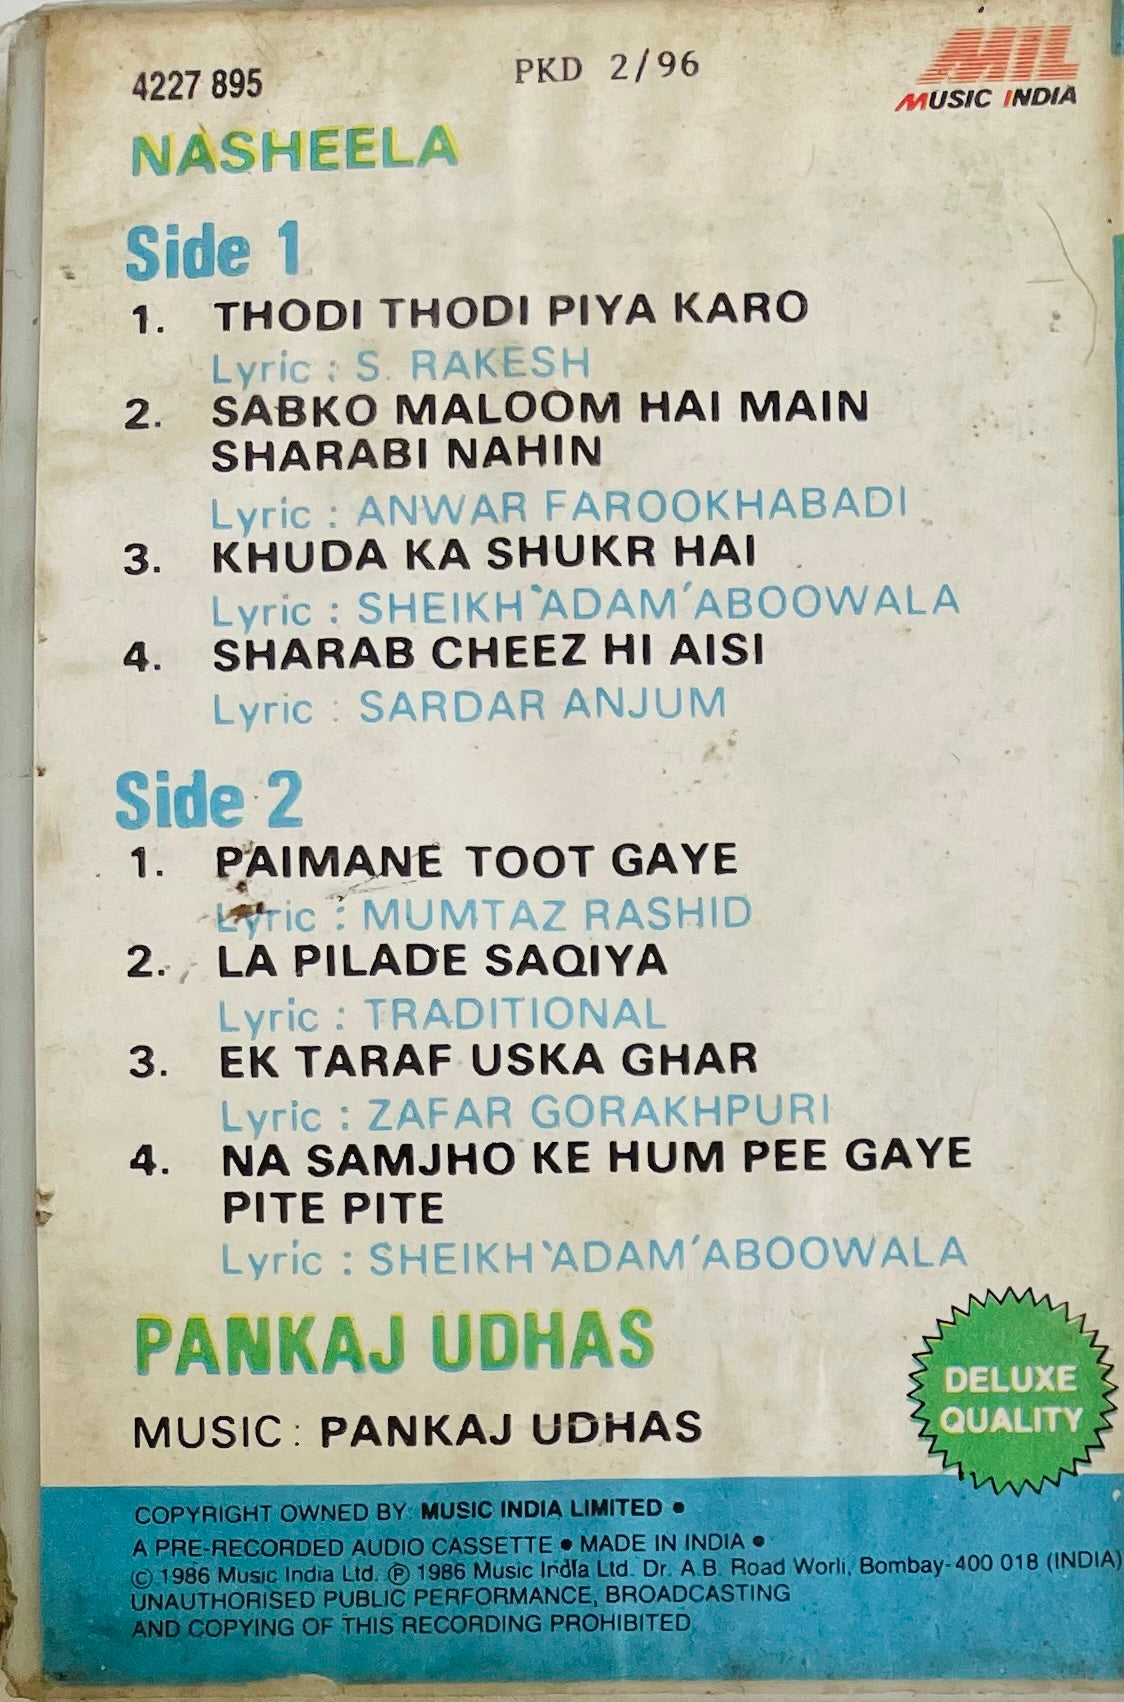 4227 895
PKD 2/96
MIL
MUSIC INDIA
NASHEELA
Side 1
1. THODI THODI PIYA KARO
Lyric : S. RAKESH
2. SABKO MALOOM HAI MAIN
SHARABI NAHIN
Lyric : ANWAR FAROOKHABADI
3. KHUDA KA SHUKR HAI
Lyric : SHEIKH ‵ADAM′ ABOOWALA
4. SHARAB CHEEZ HI AISI
Lyric : SARDAR ANJUM
Side 2
1. PAIMANE TOOT GAYE
Lyric : MUMTAZ RASHID
2. LA PILADE SAQIYA
Lyric : TRADITIONAL
3. EK TARAF USKA GHAR
Lyric : ZAFAR GORAKHPURI
4. NA SAMJHO KE HUM PEE GAYE
PITE PITE
Lyric : SHEIKH ‵ADAM′ ABOOWALA
PANKAJ UDHAS
MUSIC : PANKAJ UDHAS
DELUXE
QUALITY
COPYRIGHT OWNED BY: MUSIC INDIA LIMITED •
A PRE-RECORDED AUDIO CASSETTE • MADE IN INDIA •
© 1986 Music India Ltd. ℗ 1986 Music India Ltd. Dr. A.B. Road Worli, Bombay-400 018 (INDIA)
UNAUTHORISED PUBLIC PERFORMANCE, BROADCASTING
AND COPYING OF THIS RECORDING PROHIBITED